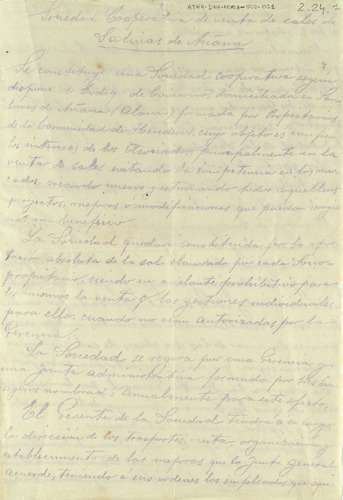 ATHA-DAH-FCMS2-002-021
2.24.1
Sociedad Cooperativa de venta de sales de
Salinas de Añana
Se constituye una Sociedad cooperativa según
dispone el Código de Comercio, domiciliada en Sa
linas de Añana (Alava) formada por Propietarios
de la Comunidad de Herederos, cuyo objeto es
los intereses de los Asociados, principalmente en la
venta de sales evitando la competencia en los mer
cados, creando nuevos y estudiando todos aquellos
proyectos, mejoras o modificaciones que puedan
un beneficio
La Sociedad quedara constituida por la apor
tación absoluta de la sal elaborada por cada
propietario, siendo en adelante prohibitivo para
los mismos la venta o las gestiones individuales
para ella, cuando no sean autorizadas por la
Gerencia.
La Sociedad se regira por una Gerencia y
una Junta administrativa formada por
nombrados anualmente para este efecto.
El Gerente de la Sociedad tendra a su cargo
la direccion de los trasportes, venta, organizacion y
establecimiento de las mejoras que la Junta General
acuerde, teniendo a sus ordenes los empleados que